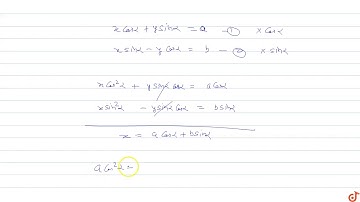 x cosα + y sinα = a - ① × cosα
x sinα - y cosα = b - ② × sinα
x cos²α + y sinα cosα = a cosα
x sin²α - y sinα cosα = b sinα
x = a cosα + b sinα
a cos²α =